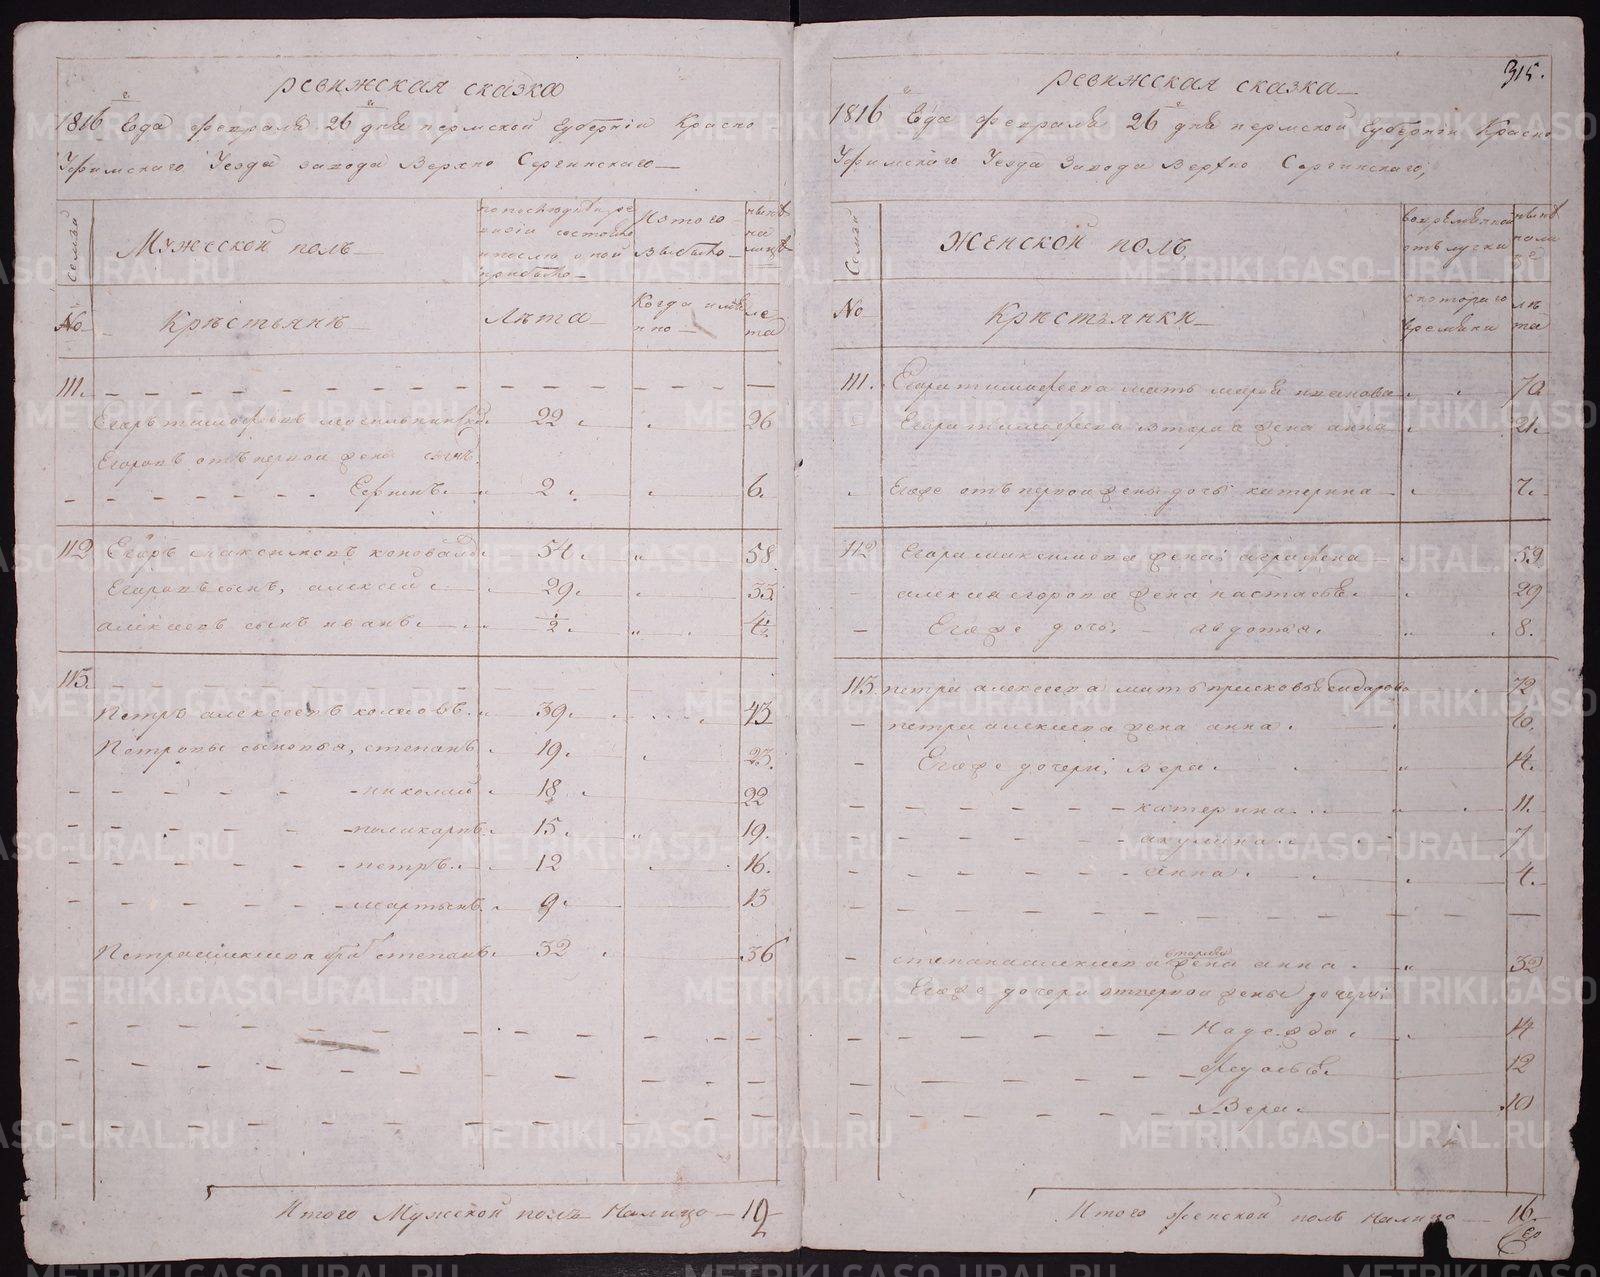 ревижская сказка
1816 года февраля 26 дня пермской губерніи Красно
Уфимскаго Уезда завода Верхно Сергинскаго
Семьи
Мужеской полъ
Изтого
выбыло
ныне
на
лице
№
Крѣстьянѣ
Лѣта
Когда имян
но
ле
та
111.
Егоръ тимофеевъ 22 26
Егоровъ отъ первой жены сынъ
Сергиѣ 2 6.
112 Егоръ максимовъ коновалов 54 58
Егоровъ сынъ, алексей 29 33
алексеевъ сынъ иванъ ½ 4½
113.
Петръ алексеевъ 39 43
Петровы сыновья, степанъ 19 23.
николай 18 22
поликарпъ 15 19.
петръ 12 16.
мартынъ 9 13
Петра алексеева братъ степанъ 32 36
Итого Мужской полъ Налицо 12
315.
ревижская сказка
1816 года февраля 26 дня пермской губерніи Красно
Уфимскаго Уезда Завода Верхно Сергинскаго,
Семьи
Женской полъ
вовременной
отлучки
ныне
нали
це
№
Крѣстьянки
скотораго
времяни
лѣ
та
111. Егора тимофеева мать марья иванова 70
Егора тимофеева вторая жена анна 21
Егоже отъ первой жены дочь катерина 7.
112 Егора максимова жена аграфена 59
алексея егорова жена настасья 29
Егоже дочь авдотья 8.
113. петра алексеева мать прасковья 72
петра алексеева жена анна 40.
Егоже дочери, вера 14.
катерина 11.
акулина 7
анна 4.
степана алексеева вторая жена анна 32
Егоже дочери отпервой жены дочери
Надежда 14
федосья 12
Вера 10
Итого женской полъ налицо 16
METRIKI.GASO-URAL.RU